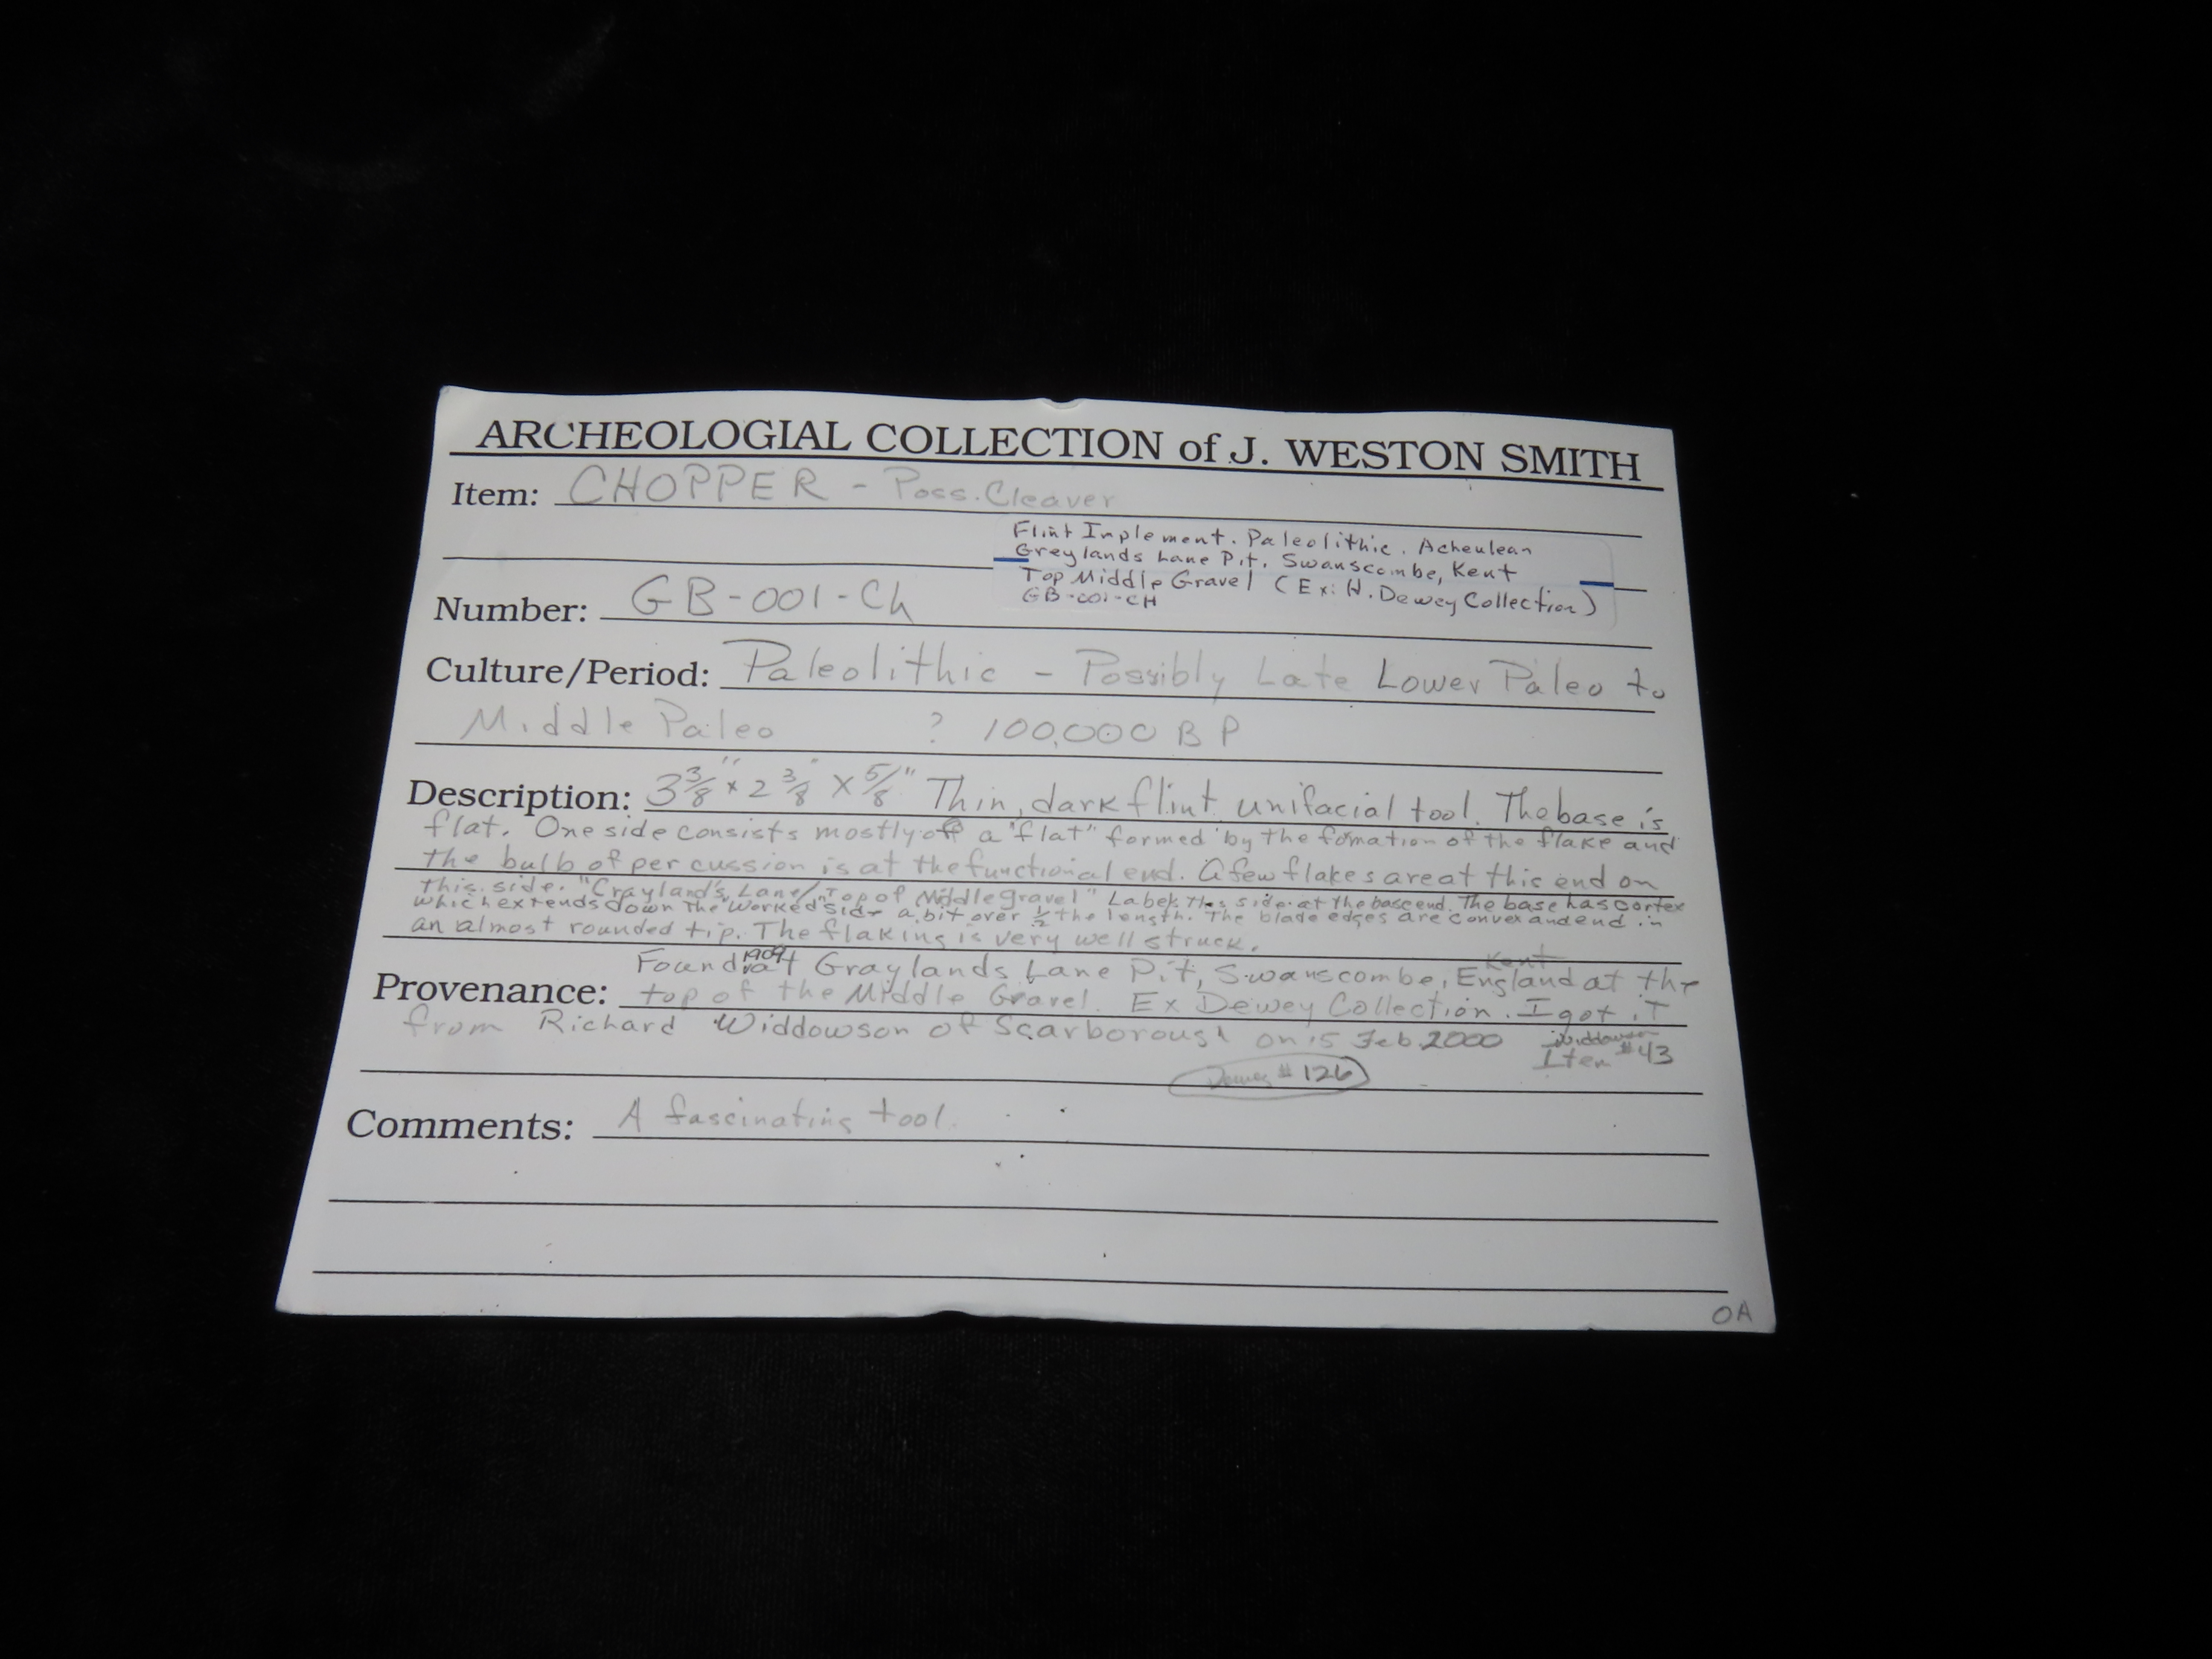 ARCHEOLOGIAL COLLECTION of J. WESTON SMITH
Item: CHOPPER - Poss. Cleaver
Flint Implement. Paleolithic. Acheulean
Greylands Lane Pit, Swanscombe, Kent
Top Middle Gravel (Ex: H. Dewey Collection)
GB-001-CH
Number: GB-001-Ch
Culture/Period: Paleolithic - Possibly Late Lower Paleo to
Middle Paleo ? 100,000 BP
Description: 3 3/8" x 2 3/8" x 5/8" Thin, dark flint unifacial tool. The base is
flat. One side consists mostly of a "flat" formed by the fomation of the flake and
the bulb of percussion is at the functional end. A few flakes are at this end on
this side. "Crayland's Lane/Top of Middle Gravel" Labels this side at the base end. The base has cortex
which extends down the "worked" side a bit over 1/2 the length. The blade edges are convex and end in
an almost rounded tip. The flaking is very well struck.
Kent
1909
Found at Graylands Lane Pit, Swanscombe, England at the
Provenance: top of the Middle Gravel. Ex Dewey Collection. I got it
from Richard Widdowson of Scarborough on 15 Feb. 2000
Widdowson
Item #43
Dewey #126
Comments: A fascinating tool.
OA